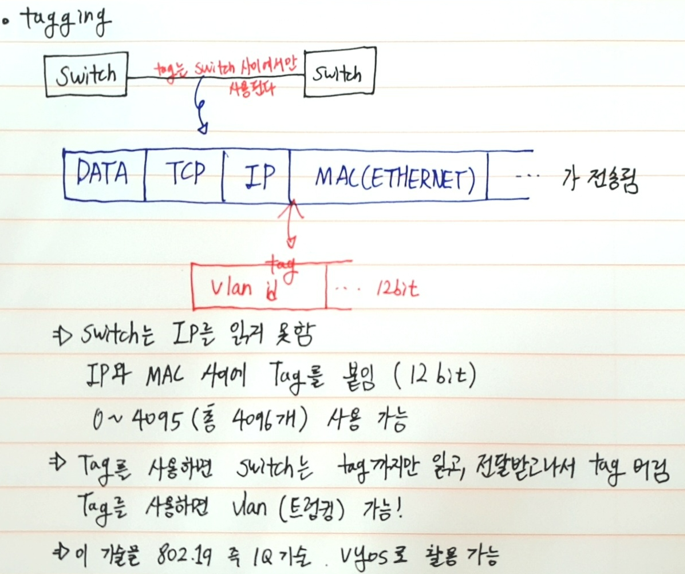 • tagging
Switch
tag는 switch 사이에서만
사용된다
Switch
DATA TCP IP MAC(ETHERNET) ... 가 전송됨
tag
vlan id ... 12bit
⇒ switch는 IP를 읽지 못함
IP와 MAC 사이에 Tag를 붙임 (12 bit)
0 ~ 4095 (총 4096개) 사용 가능
⇒ Tag를 사용하면 switch는 tag까지만 읽고, 전달받고나서 tag 버림
Tag를 사용하면 vlan (트렁킹) 가능!
⇒ 이 기술을 802.19 즉 1Q기술. vyos로 활용 가능